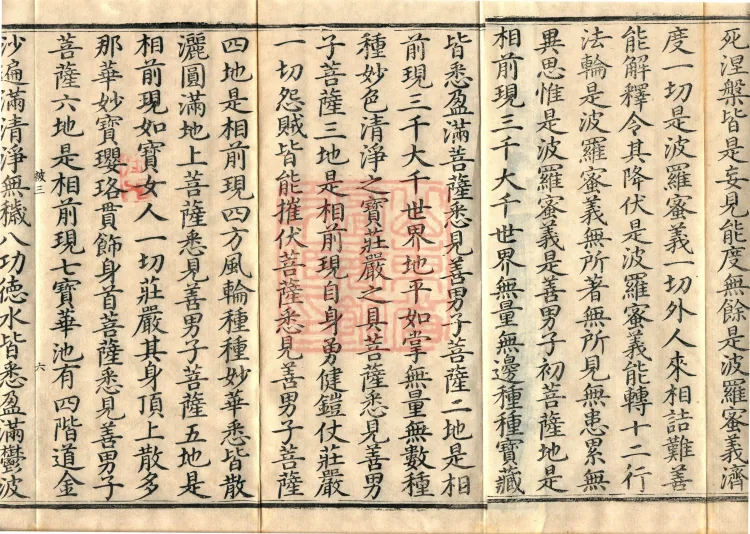 死涅槃皆是妄見能度無餘是波羅蜜義濟
度一切是波羅蜜義一切外人來相詰難善
能解釋令其降伏是波羅蜜義能轉十二行
法輪是波羅蜜義無所著無所見無患累無
異思惟是波羅蜜義是善男子初菩薩地是
相前現三千大千世界無量無邊種種寶藏
皆悉盈滿菩薩悉見善男子菩薩二地是相
前現三千大千世界地平如掌無量無數種
種妙色清淨之寶莊嚴之具菩薩悉見善男
子菩薩三地是相前現自身勇健鎧仗莊嚴
一切怨賊皆能摧伏菩薩悉見善男子菩薩
四地是相前現四方風輪種種妙華悉皆散
灑圓滿地上菩薩悉見善男子菩薩五地是
相前現如寶女人一切莊嚴其身頂上散多
那華妙寶瓔珞貫飾身首菩薩悉見善男子
菩薩六地是相前現七寶華池有四階道金
被三 六
沙遍滿清淨無穢八功德水皆悉盈滿鬱波